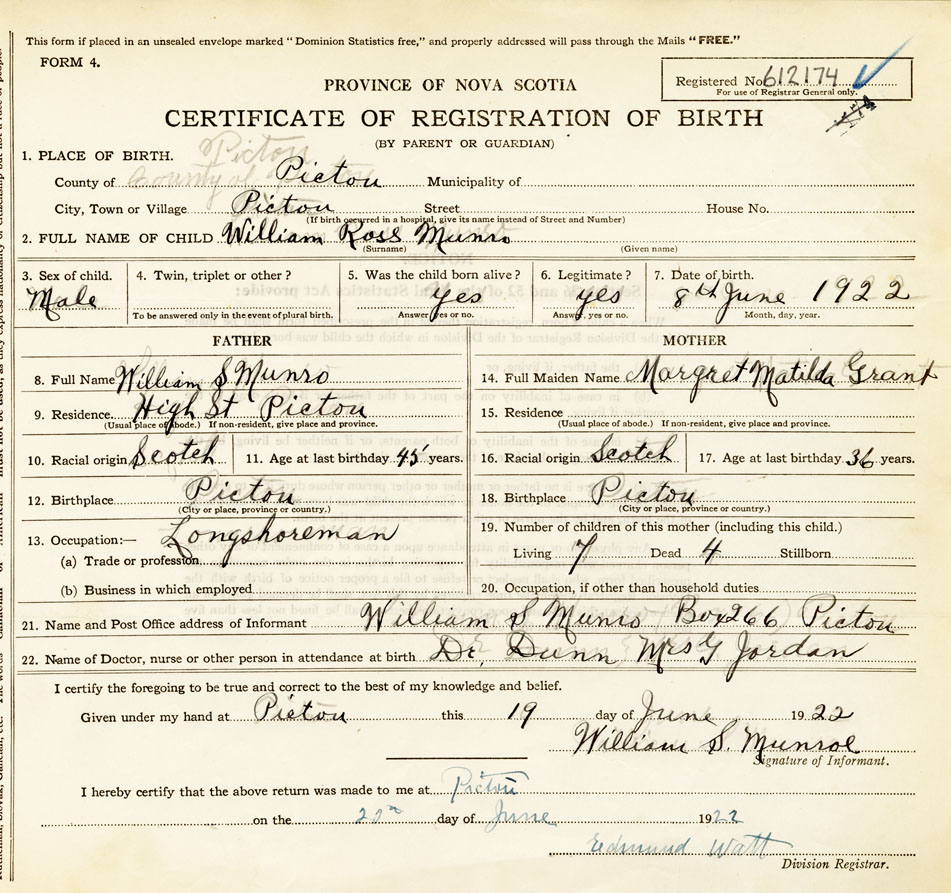 This form if placed in an unsealed envelope marked "Dominion Statistics free," and properly addressed will pass through the Mails "FREE."
FORM 4.
Registered No. 612174
For use of Registrar General only.
PROVINCE OF NOVA SCOTIA
CERTIFICATE OF REGISTRATION OF BIRTH
(BY PARENT OR GUARDIAN)
1. PLACE OF BIRTH. Pictou
County of Pictou Municipality of
City, Town or Village Pictou Street House No.
(If birth occurred in a hospital, give its name instead of Street and Number)
2. FULL NAME OF CHILD William Ross Munro
(Surname) (Given name)
3. Sex of child. 4. Twin, triplet or other? 5. Was the child born alive? 6. Legitimate? 7. Date of birth.
Male Yes yes 8th June 1922
To be answered only in the event of plural birth. Answer yes or no. Answer, yes or no. Month, day, year.
FATHER
8. Full Name William S Munro
9. Residence High St Pictou
(Usual place of abode.) If non-resident, give place and province.
10. Racial origin Scotch 11. Age at last birthday 45 years.
12. Birthplace Pictou
(City or place, province or country.)
13. Occupation:— Longshoreman
(a) Trade or profession
(b) Business in which employed
MOTHER
14. Full Maiden Name Margret Matilda Grant
15. Residence
(Usual place of abode.) If non-resident, give place and province.
16. Racial origin Scotch 17. Age at last birthday 36 years.
18. Birthplace Pictou
(City or place, province or country.)
19. Number of children of this mother (including this child.)
Living 7 Dead 4 Stillborn
20. Occupation, if other than household duties
21. Name and Post Office address of Informant William S Munro Box 266 Pictou
22. Name of Doctor, nurse or other person in attendance at birth Dr. Dunn Mrs G Jordan
I certify the foregoing to be true and correct to the best of my knowledge and belief.
Given under my hand at Pictou this 19 day of June 1922
William S. Munroe
Signature of Informant.
I hereby certify that the above return was made to me at Pictou
on the 20th day of June 1922
Edmund Watt
Division Registrar.